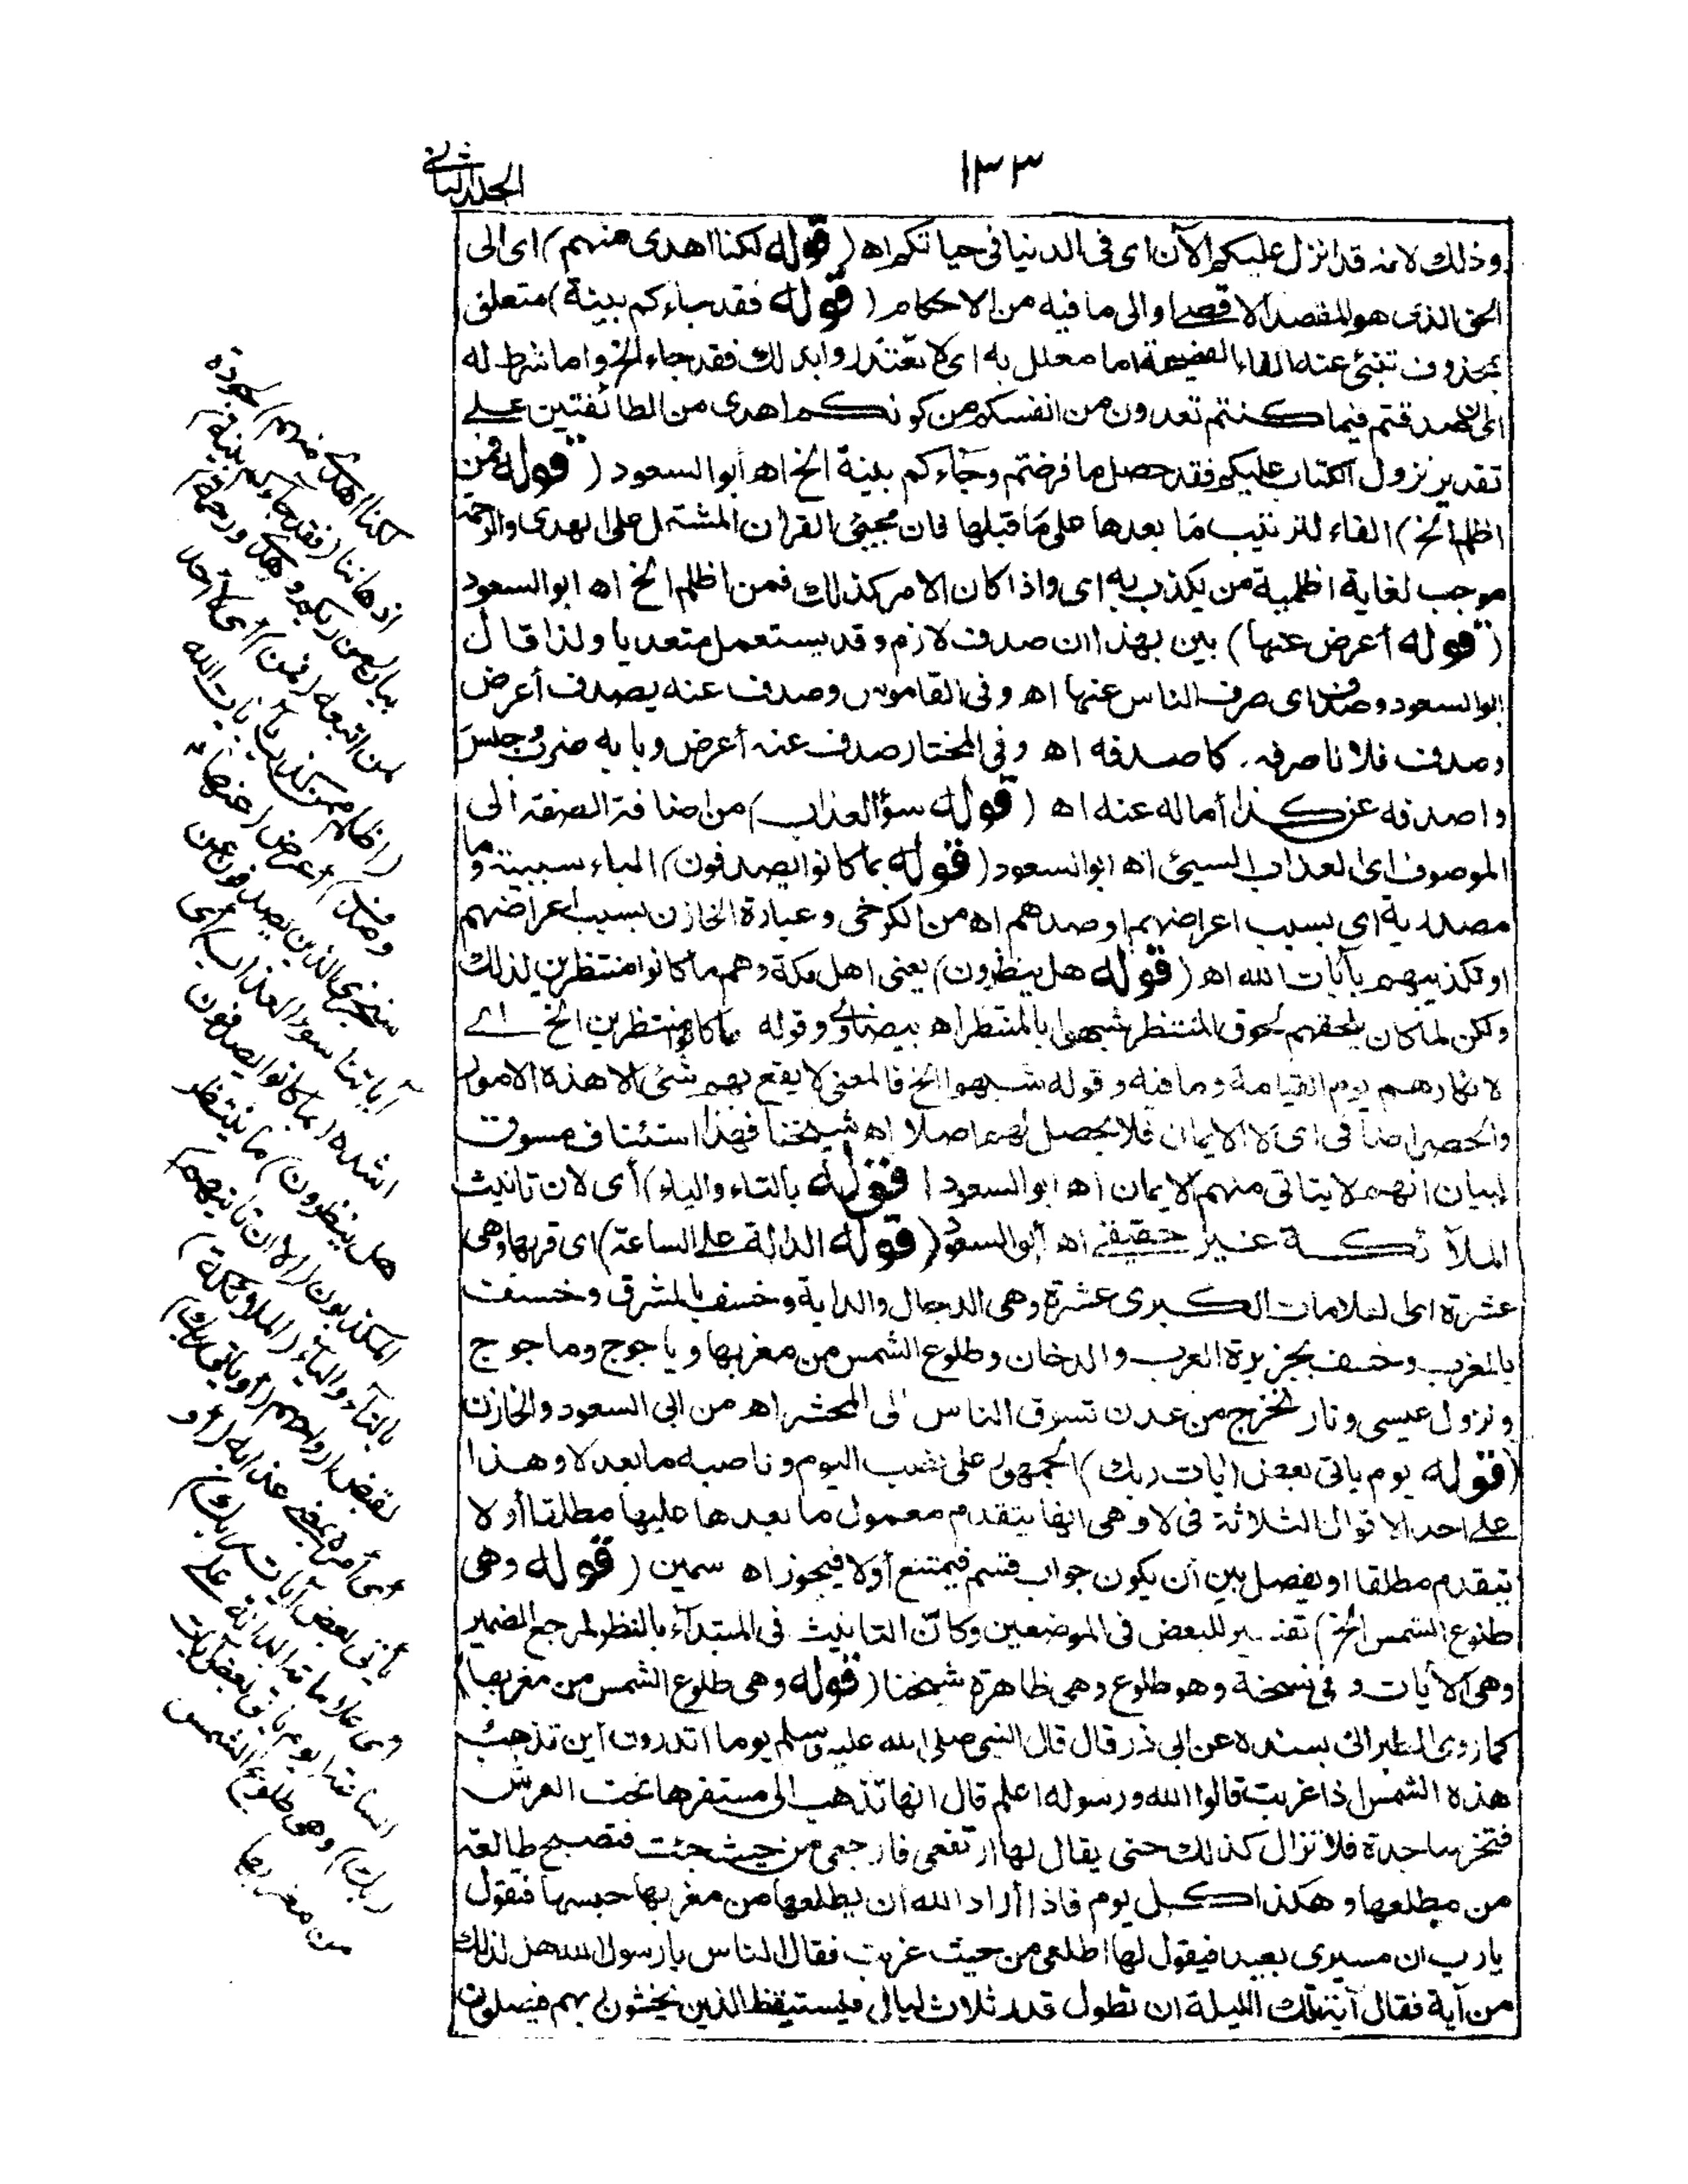 ١٣٣
الجلد الثاني
وذلك لانه قد انزل عليكم الآن اى فى الدنيا فى حياتكم اه (قوله لكنا اهدى منهم) اى الى
الحق الذى هو المقصد الاقصى او الى ما فيه من الاحكام (قوله فقد جاءكم بينة) متعلق
بمحذوف تنبئ عنه الفاء الفصيحة اما معلل به اى لا تعتذروا بذلك فقد جاء الخ واما شرط له
اى ان صدقتم فيما كنتم تعدون من انفسكم من كونكم اهدى من الطائفتين على
تقدير نزول الكتاب عليكم فقد حصل ما فرضتم وجاءكم بينة الخ اه أبو السعود (قوله فمن
اظلم الخ) الفاء لترتيب ما بعدها على ما قبلها فان مجيئ القرآن المشتمل على الهدى والرحمة
موجب لغاية اظلمية من يكذب به اى واذا كان الامر كذلك فمن اظلم الخ اه ابو السعود
(قوله أعرض عنها) بين بهذا ان صدف لازم وقد يستعمل متعديا ولذا قال
ابو السعود وصدف اى صرف الناس عنها اه وفى القاموس وصدف عنه يصدف أعرض
وصدف فلانا صرفه كاصدفه اه وفى المختار صدف عنه أعرض وبابه ضرب وجلس
واصدفه عن كذا أماله عنه اه (قوله سؤ العذاب) من اضافة الصفة الى
الموصوف اى العذاب السيئ اه ابو السعود (قوله بما كانوا يصدفون) الباء سببية وما
مصدرية اى بسبب اعراضهم او صدهم اه من الكرخى وعبارة الخازن بسبب اعراضهم
او تكذيبهم بآيات الله اه (قوله هل ينظرون) يعنى اهل مكة وهم ما كانوا منتظرين لذلك
ولكن لما كان يلحقهم لحوق المنتظر شبهوا بالمنتظر اه بيضاوى وقوله ما كانوا منتظرين الخ اى
لانكارهم يوم القيامة وما فيه وقوله شبهوا الخ فالمعنى لا يقع بهم شئ الا هذه الامور
والحصر اضافى اى لا الايمان فلا يحصل لهم اصلا اه شيخنا فهذا استئناف مسوق
لبيان انهم لا يتاتى منهم الايمان اه ابو السعود (قوله بالتاء والياء) أى لان تانيث
الملآئكة غير حقيقى اه أبو السعود (قوله الدالة على الساعة) اى قربها وهى
عشرة اى العلامات الكبرى عشرة وهى الدجال والدابة وخسف بالمشرق وخسف
بالمغرب وخسف بجزيرة العرب والدخان وطلوع الشمس من مغربها وياجوج وماجوج
ونزول عيسى ونار تخرج من عدن تسوق الناس الى المحشر اه من ابى السعود والخازن
(قوله يوم ياتى بعض ايات ربك) الجمهور على نصب اليوم وناصبه ما بعد لا وهذا
على احد الاقوال الثلاثة فى لا وهى انها يتقدم معمول ما بعدها عليها مطلقا أو لا
يتقدم مطلقا او يفصل بين أن يكون جواب قسم فيمتنع أولا فيجوز اه سمين (قوله وهى
طلوع الشمس الخ) تفسير للبعض فى الموضعين وكانّ التانيث فى المبتدآء بالنظر لمرجع الضمير
وهى الآيات وفى نسخة وهو طلوع وهى ظاهرة شيخنا (قوله وهى طلوع الشمس من مغربها)
كما روى الطبرانى بسنده عن ابى ذر قال قال النبى صلى الله عليه وسلم يوما اتدرون اين تذهب
هذه الشمس اذا غربت قالوا الله ورسوله اعلم قال انها تذهب الى مستقرها تحت العرش
فتخر ساجدة فلا تزال كذلك حتى يقال لها ارتفعى فارجعى من حيث جئت فتصبح طالعة
من مطلعها وهكذا كل يوم فاذا أراد الله ان يطلعها من مغربها حبسها فتقول
يا رب ان مسيرى بعيد فيقول لها اطلعى من حيث غربت فقال الناس يا رسول الله هل لذلك
من آية فقال آية تلك الليلة ان تطول قدر ثلاث ليالى فيستيقظ الذين يخشون ربهم فيصلون
لكنا اهدى منهم) لجودة
اذهاننا (فقد جآءكم بينة)
بيان (من ربكم وهدى ورحمة)
لمن اتبعه (فمن) أى لا أحد
(اظلم ممن كذب بآيات الله
وصدف) أعرض (عنها
سنجزى الذين يصدفون عن
آياتنا سوء العذاب) أى
اشده (بما كانوا يصدفون
هل ينظرون) ما ينتظر
المكذبون (الا ان تاتيهم)
بالتآء واليآء (الملائكة)
لقبض ارواحهم (أو ياتى ربك)
أى أمره بمعنى عذابه (أو
يأتى بعض آيات ربك)
أى علاماته الدالة على
الساعة (يوم ياتى بعض آيات
ربك) وهى طلوع الشمس
من مغربها